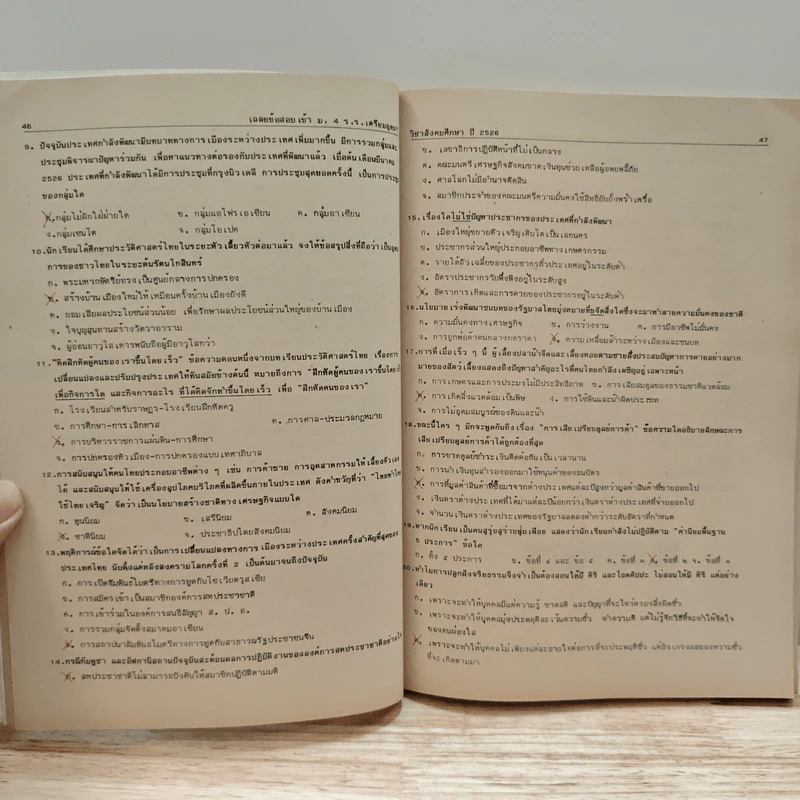 46
เฉลยข้อสอบเข้า ม. 4 ร.ร.เตรียมอุดมฯ
9. ปัจจุบันประเทศกำลังพัฒนามีบทบาททางการเมืองระหว่างประเทศเพิ่มมากขึ้น มีการรวมกลุ่มและ
ประชุมพิจารณาปัญหาร่วมกัน เพื่อหาแนวทางต่อรองกับประเทศที่พัฒนาแล้ว เมื่อต้นเดือนมีนาคม
2526 ประเทศที่กำลังพัฒนาได้มีการประชุมที่กรุงนิวเดลี การประชุมสุดยอดครั้งนี้ เป็นการประชุม
ของกลุ่มใด
ก.กลุ่มไม่ฝักใฝ่ฝ่ายใด ข. กลุ่มแอโฟรเอเซียน ค. กลุ่มอาเซียน
ง.กลุ่มเซนโต จ. กลุ่มโอเปค
10.นักเรียนได้ศึกษาประวัติศาสตร์ไทยในระยะหัวเลี้ยวหัวต่อมาแล้ว จงให้ข้อสรุปสิ่งที่ถือว่าเป็นอุดม
การของชาวไทยในระยะต้นรัตนโกสินทร์
ก. พระมหากษัตริย์ทรงเป็นศูนย์กลางการปกครอง
ข. สร้างบ้านเมืองใหม่ให้เหมือนครั้งบ้านเมืองยังดี
ค. ยอมเสียผลประโยชน์ส่วนน้อย เพื่อรักษาผลประโยชน์ส่วนใหญ่ของบ้านเมือง
ง. ใจบุญสุนทานสร้างวัดวาอาราม
จ. ผู้อ่อนอาวุโสเคารพนับถือผู้มีอาวุโสกว่า
11."คิดฝึกหัดผู้คนของเราขึ้นโดยเร็ว" ข้อความตอนหนึ่งจากบทเรียนประวัติศาสตร์ไทย เรื่องการ
เปลี่ยนแปลงและปรับปรุงประเทศให้ทันสมัยข้างต้นนี้ หมายถึงการ "ฝึกหัดผู้คนของเราขึ้นโดยเร็ว
เพื่อกิจการใด และกิจการอะไร ที่ได้คิดจัดทำขึ้นโดยเร็ว เพื่อ "ฝึกหัดคนของเรา"
ก. โรงเรียนสำหรับราษฎร-โรงเรียนฝึกหัดครู
ข. การศึกษา-การเลิกทาส ค. การศาล-ประมวลกฎหมาย
ง. การบริหารราชการแผ่นดิน-การศึกษา
จ. การปกครองหัวเมือง-การปกครองแบบเทศาภิบาล
12.การสนับสนุนให้คนไทยประกอบอาชีพต่าง ๆ เช่น การค้าขาย การอุตสาหกรรมให้เลี้ยงตัวเอง
ได้ และสนับสนุนให้ใช้เครื่องอุปโภคบริโภคที่ผลิตขึ้นภายในประเทศ ดังคำขวัญที่ว่า "ไทยทำไทย
ใช้ไทยเจริญ" จัดว่าเป็นนโยบายสร้างชาติทางเศรษฐกิจแบบใด
ก. ทุนนิยม ข. เสรีนิยม ค. สังคมนิยม
ง. ชาตินิยม จ. ประชาธิปไตยสังคมนิยม
13.พฤติการณ์ข้อใดจัดได้ว่าเป็นการเปลี่ยนแปลงทางการเมืองระหว่างประเทศครั้งสำคัญที่สุดของ
ประเทศไทย นับตั้งแต่หลังสงครามโลกครั้งที่ 2 เป็นต้นมาจนถึงปัจจุบัน
ก. การเปิดสัมพันธ์ไมตรีทางการทูตกับโซเวียตรุสเซีย
ข. การสมัครเข้าเป็นสมาชิกองค์การสหประชาชาติ
ค. การเข้าร่วมในองค์การสนธิสัญญา ส. ป. อ.
ง. การรวมกลุ่มจัดตั้งสมาคมอาเซียน
จ. การสถาปนาสัมพันธไมตรีทางการทูตกับสาธารณรัฐประชาชนจีน
14.กรณีกัมพูชา และอัฟกานิสถานปัจจุบันสะท้อนผลการปฏิบัติงานขององค์การสหประชาชาติอย่างไร
ก. สหประชาชาติไม่สามารถบังคับให้สมาชิกปฏิบัติตามมติ
วิชาสังคมศึกษา ปี 2526
47
ข. เลขาธิการปฏิบัติหน้าที่ไม่เป็นกลาง
ค. คณะมนตรีเศรษฐกิจสังคมขาดเงินทุนช่วยเหลือผู้อพยพลี้ภัย
ง. ศาลโลกไม่มีอำนาจตัดสิน
จ. สมาชิกประจำของคณะมนตรีความมั่นคงใช้สิทธิยับยั้งพร่ำเพรื่อ
15.เรื่องใดไม่ใช่ปัญหาประชากรของประเทศที่กำลังพัฒนา
ก. เมืองใหญ่ขยายตัวเจริญเติบโตเป็นเอกนคร
ข. ประชากรส่วนใหญ่ประกอบอาชีพทางเกษตรกรรม
ค. รายได้ถัวเฉลี่ยของประชากรทั่วประเทศอยู่ในระดับต่ำ
ง. อัตราประชากรวัยพึ่งพิงอยู่ในระดับสูง
จ. อัตราการเกิดและการตายของประชากรอยู่ในระดับต่ำ
16.นโยบายเร่งพัฒนาชนบทของรัฐบาลไทยมุ่งหมายที่ขจัดสิ่งใดซึ่งจะมาทำลายความมั่นคงของชาติ
ก. ความมั่นคงทางเศรษฐกิจ ข. การว่างงาน ค. การมีอาชีพไม่มั่นคง
ง. การถูกพ่อค้าคนกลางกดราคา จ. ความเหลื่อมล้ำระหว่างเมืองและชนบท
17.การที่เมื่อเร็ว ๆ นี้ ผู้เลี้ยงปลาน้ำจืดและเลี้ยงหอยตามชายฝั่งประสบปัญหาการตายอย่างมาก
มายของสัตว์เลี้ยงแสดงถึงปัญหาสำคัญอะไรที่คนไทยกำลังเผชิญอยู่เฉพาะหน้า
ก. การเกษตรและการประมงไม่มีประสิทธิภาพ ข. การเสียสมดุลของธรรมชาติแวดล้อม
ค. การเกิดสิ่งแวดล้อมเป็นพิษ ง. การใช้ดินและน้ำผิดประเภท
จ. การไม่อุดมสมบูรณ์ของดินและน้ำ
18.ขณะนี้ใคร ๆ มักจะพูดกันถึงเรื่อง "การเสียเปรียบดุลย์การค้า" ข้อความใดอธิบายลักษณะการ
เสียเปรียบดุลย์การค้าได้ถูกต้องที่สุด
ก. การขาดดุลย์ชำระเงินติดต่อกันเป็นเวลานาน
ข. การนำเงินทุนสำรองออกมาใช้หนุนค่าของธนบัตร
ค. การที่มูลค่าสินค้าที่ซื้อมาจากต่างประเทศแต่ละปีสูงกว่ามูลค่าสินค้าที่ขายออกไป
ง. เงินตราต่างประเทศที่ได้มาแต่ละปีน้อยกว่าเงินตราต่างประเทศที่จ่ายออกไป
จ. จำนวนเงินตราต่างประเทศของรัฐบาลลดลงต่ำกว่าระดับอัตราที่กำหนด
19.หากนักเรียนเป็นคนสุรุ่ยสุร่ายฟุ่มเฟือย แสดงว่านักเรียนกำลังไม่ปฏิบัติตาม "ค่านิยมพื้นฐาน
5 ประการ" ข้อใด
ก. ทั้ง ๕ ประการ ข. ข้อที่ ๔ และข้อ ๕ ค. ข้อที่ ๓ ง. ข้อที่ ๒ จ. ข้อที่ ๑
20.ทำไมการปลูกฝังจริยธรรมจึงจำเป็นต้องสอนให้มี หิริ และโอตตัปปะ ไม่สอนให้มี หิริ แต่อย่าง
เดียว
ก. เพราะจะทำให้บุคคลมีแต่ความรู้ ขาดสติ และปัญญาที่จะไตร่ตรองสิ่งผิดชั่ว
ข. เพราะจะทำให้บุคคลมุ่งประพฤติละเว้นความชั่ว ทำความดี แต่ไม่รู้จักวิธีที่จะทำให้จิตใจ
ของตนผ่องใส
ค. เพราะจะทำให้บุคคลไม่เพียงแต่ละอายใจต่อการที่จะประพฤติชั่ว แต่ยังเกรงผลของความชั่ว
ที่จะเกิดตามมา